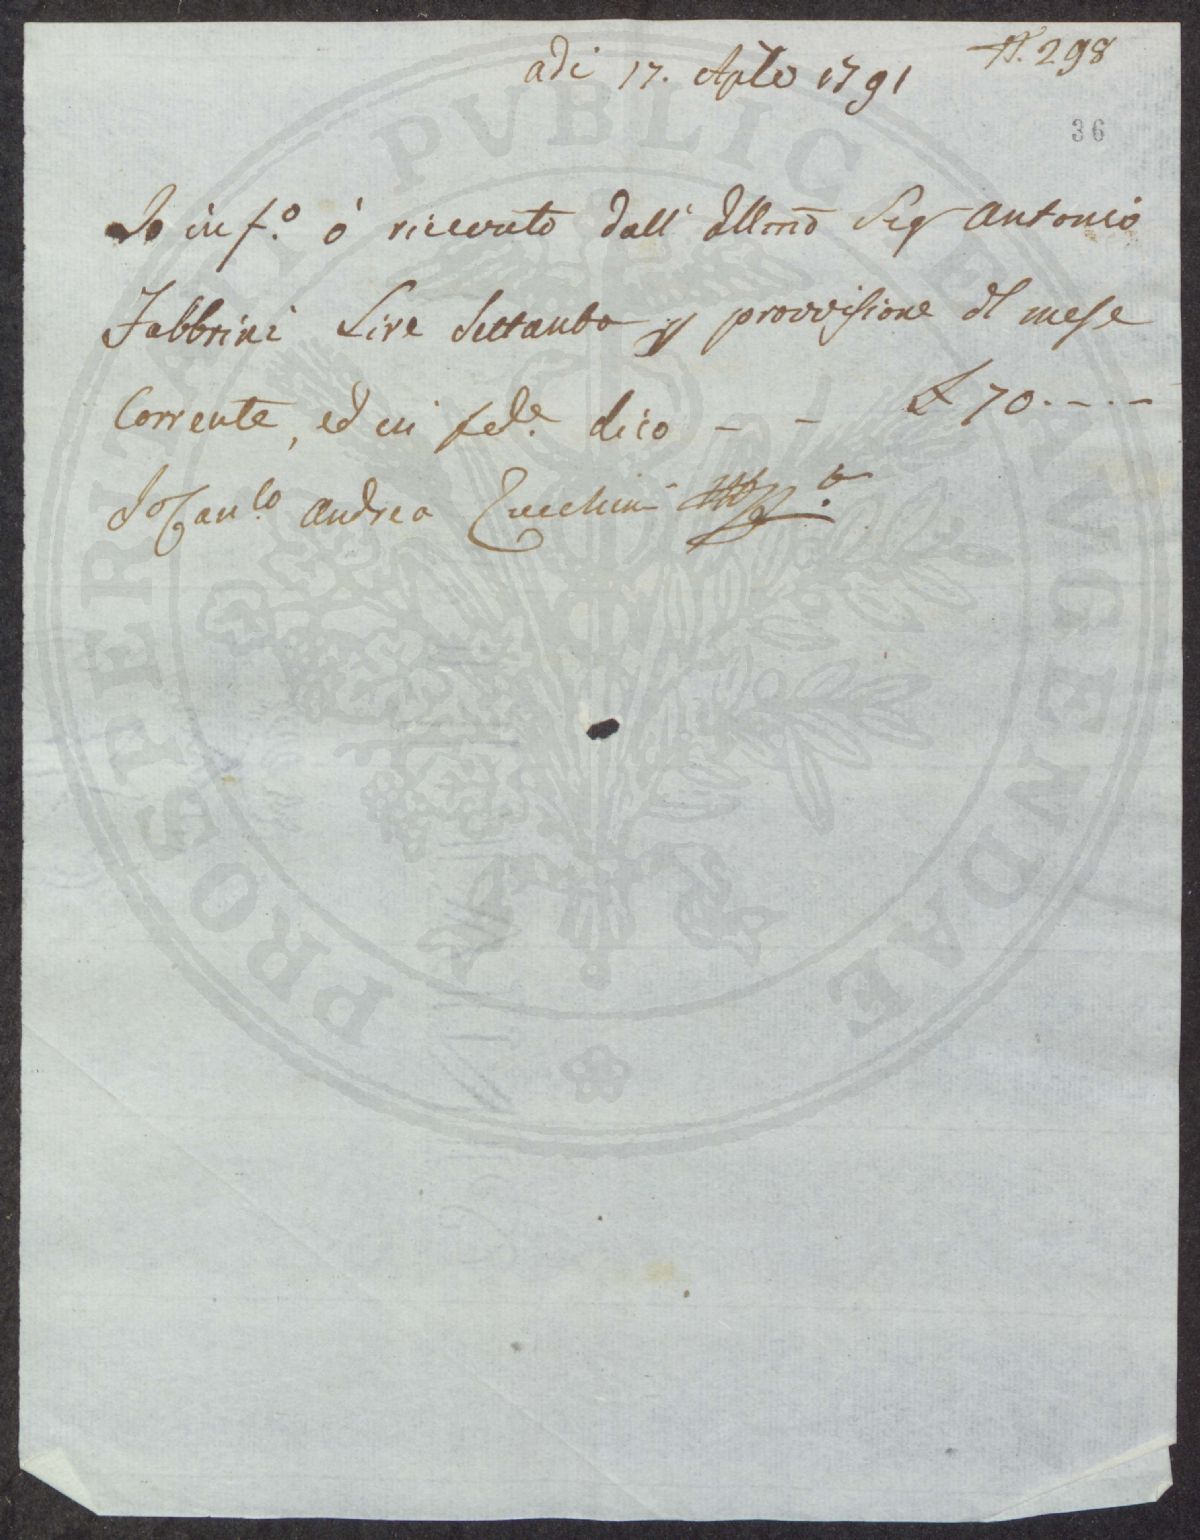 N. 298
adi 17. Aple 1791
36
Io inf.o ò riceuuto dall' Illmo Sig Antonio
Fabbrini Lire Settanta p provvisione dl mese
Corrente, ed in fede. dico - - £ 70.-.-
Io Andrea Zucchini
PROSPERITATI PUBLICAE AVGENDAE